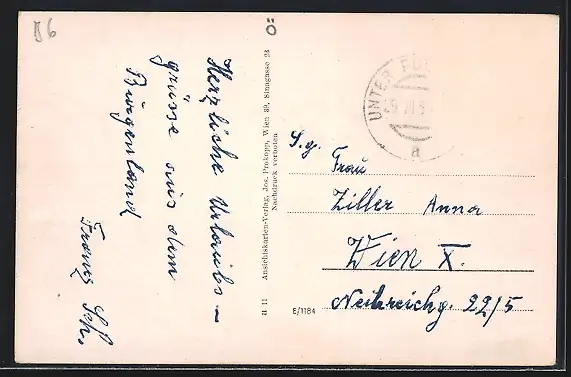 Herzliche Urlaubs-
grüsse aus dem
Burgenland
Franz Sch.
ö
a 11 Ansichtskarten-Verlag, Jos. Prokopp, Wien 82, Sinagasse 23
Nachdruck verboten
UNTER
a
S.g. Frau
Ziller Anna
Wien X.
Neilreichg. 22/5
E/1184